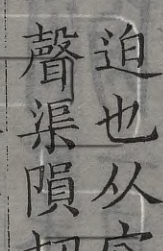 迫也从
聲渠隕